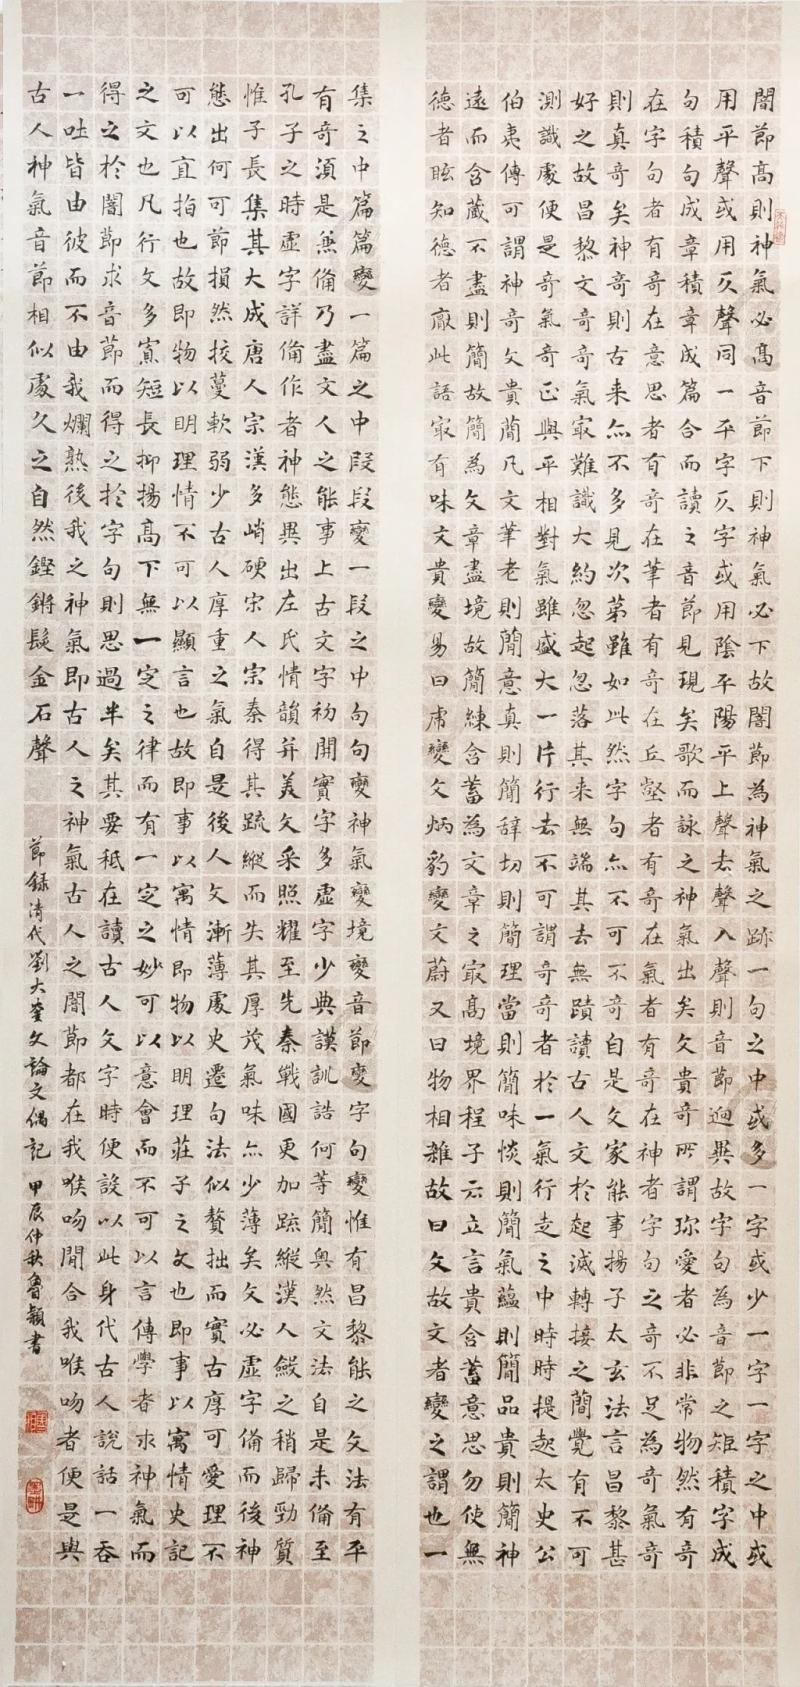 闇節高則神氣必高音節下則神氣必下故闇節為神氣之跡一句之中或多一字或少一字一字之中或
用平聲或用仄聲同一平字仄字或用陰平陽平上聲去聲入聲則音節迥異故字句為音節之矩積字成
句積句成章積章成篇合而讀之音節見現矣歌而詠之神氣出矣文貴奇所謂珍愛者必非常物然有奇
在字句者有奇在意思者有奇在筆者有奇在丘壑者有奇在氣者有奇在神者字句之奇不足為奇氣奇
則真奇矣神奇則古来亦不多見次第雖如此然字句亦不可不奇自是文家能事揚子太玄法言昌黎甚
好之故昌黎文奇奇氣最難識大約忽起忽落其来無端其去無蹟讀古人文於起滅轉接之間覺有不可
測識處便是奇氣奇正與平相對氣雖盛大一片行去不可謂奇奇者於一氣行走之中時時提起太史公
伯夷傳可謂神奇文貴簡凡文筆老則簡意真則簡辞切則簡理當則簡味惔則簡氣蘊則簡品貴則簡神
遠而含藏不盡則簡故簡為文章盡境故簡練含蓄為文章之最高境界程子云立言貴含蓄意思勿使無
德者眩知德者厭此語最有味文貴變易曰虎變文炳豹變文蔚又曰物相雜故曰文故文者變之謂也一
集之中篇篇變一篇之中段段變一段之中句句變神氣變境變音節變字句變惟有昌黎能之文法有平
有奇須是兼備乃盡文人之能事上古文字初開實字多虛字少典謨訓誥何等簡奧然文法自是未備至
孔子之時虛字詳備作者神態畢出左氏情韻并美文采照耀至先秦戰國更加疏縱漢人斂之稍歸勁質
惟子長集其大成唐人宗漢多峭硬宋人宗秦得其疏縱而失其厚茂氣味亦少薄矣文必虛字備而後神
態出何可節損然挍蔓軟弱少古人厚重之氣自是後人文漸薄處史遷句法似贅拙而實古厚可愛理不
可以直指也故即物以明理情不可以顯言也故即事以寓情即物以明理莊子之文也即事以寓情史記
之文也凡行文多寡短長抑揚高下無一定之律而有一定之妙可以意會而不可以言傳學者求神氣而
得之於闇節求音節而得之於字句則思過半矣其要秪在讀古人文字時便設以此身代古人說話一吞
一吐皆由彼而不由我爛熟後我之神氣即古人之神氣古人之闇節都在我喉吻間合我喉吻者便是與
古人神氣音節相似處久之自然鏗鏘發金石聲
節録清代劉大奎文論文偶記 甲辰仲秋魯穎書